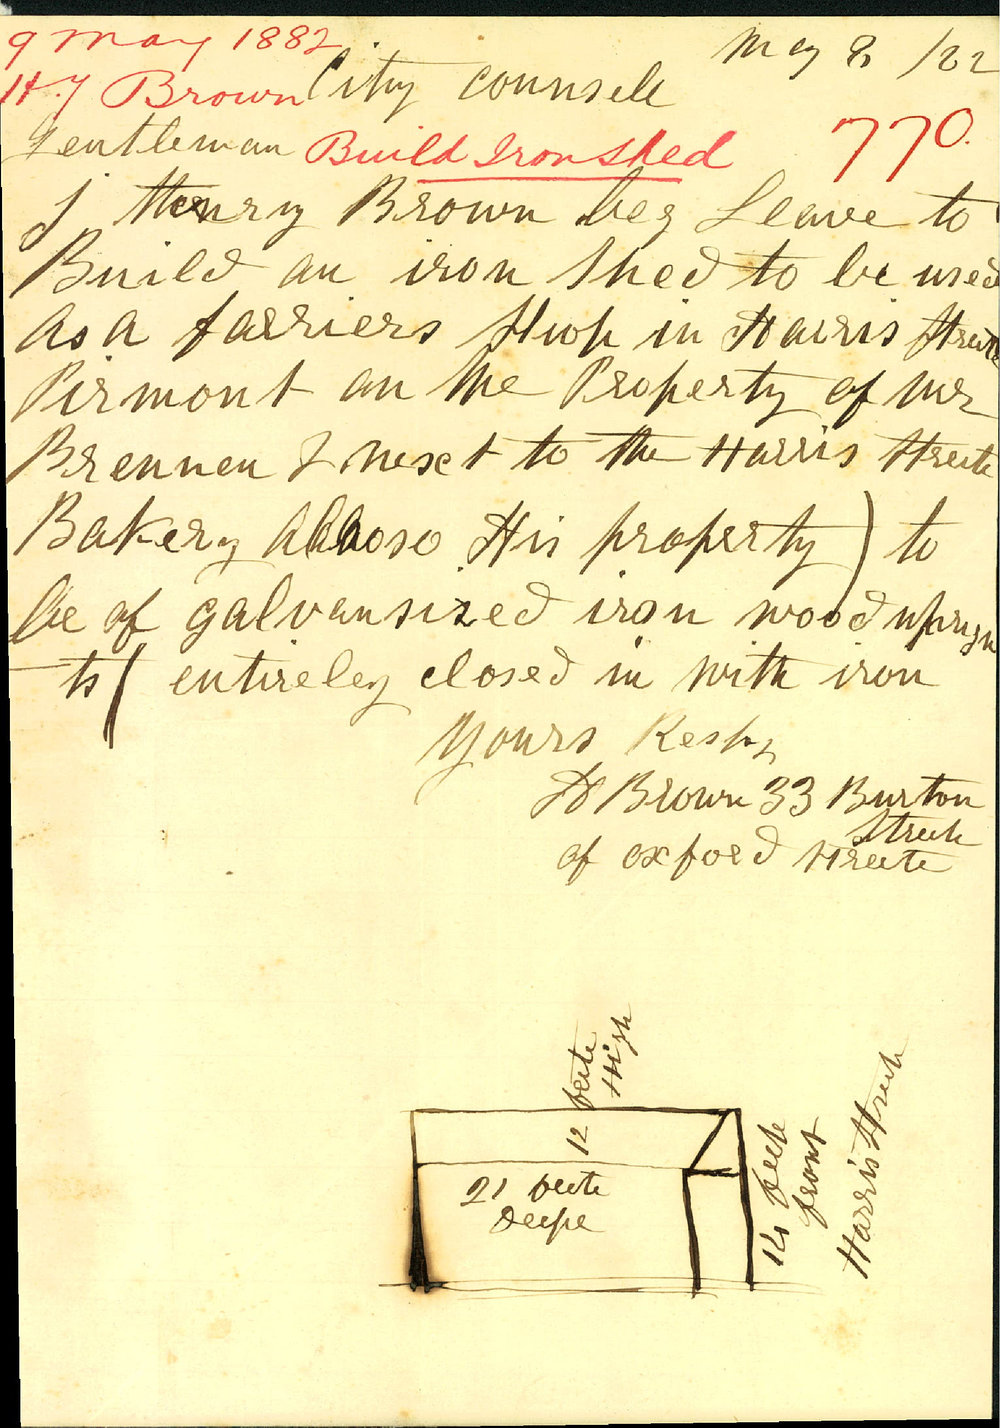 9 May 1882
May 8 /82
Hy Brown
City counsele
Gentleman
Build Iron Shed
770.
J Henry Brown beg Leave to
Build an iron Shed to be used
As a farriers Shop in Harris Streete
Pirmont an the Property of Mr
Brennen & next to the Harris Streete
Bakery allso His property ) to
be of galvansized iron wood uprigh
ts ( entireley closed in with iron
Yours Respy
H Brown 33 Burton
Streete
of oxford streete
12 feete
High
21 feete
Deepe
14 feete
front
Harris Streete